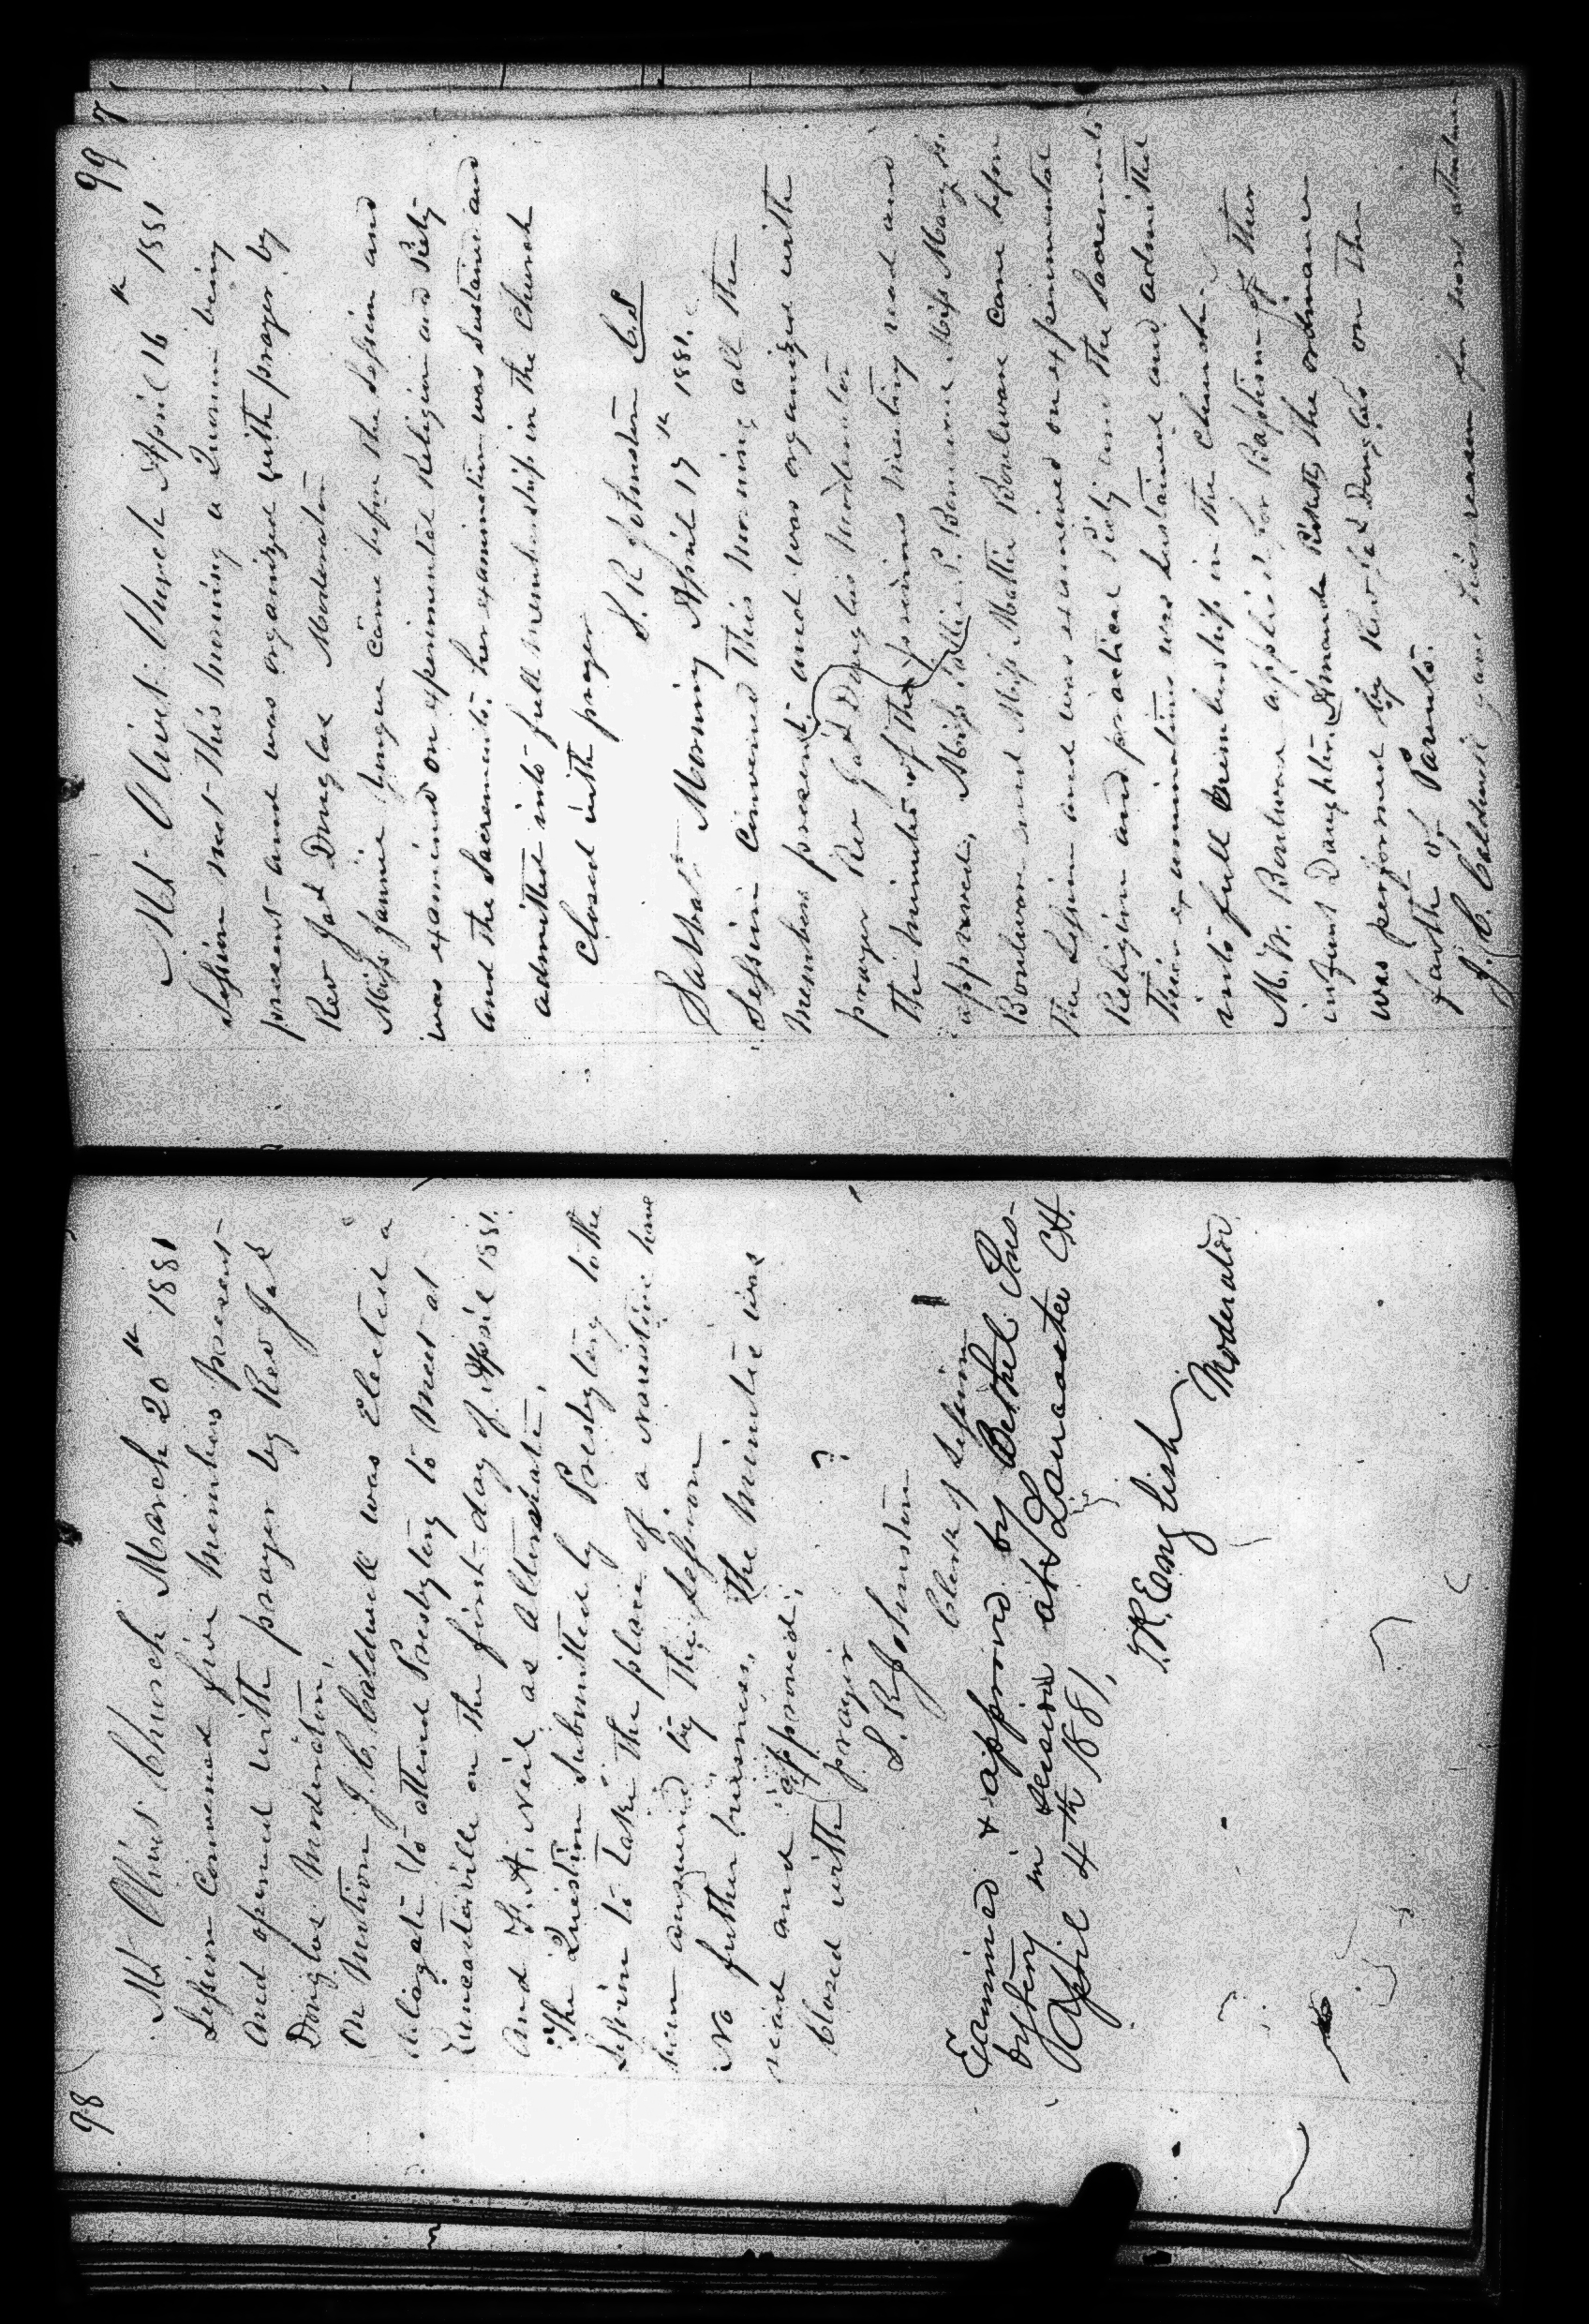 98
Mt Olivet Church March 20th 1881
Session Convened five Members present
And opened with prayer by Rev Jas
Douglas Moderator.
On Motion J. C. Caldwell was Elected a
deligate to attend Presbytery to Meet at
Lancasterville on the first day of April 1881.
And as alternate.
The Question Submitted by Presbytery to the
Session to take the place of a Narative have
been answered by the Session
No further business. The Minutes was
read and approved.
Closed with prayer
S. R. Johnston
Clerk of Session
Examined & approved by Bethel Pres-
bytery in session at Lancaster CH.
April 4th 1881,
T. R. English
Moderator
99
Mt Olivet Church April 16th 1881
Session met this morning a Quorum being
present and was organized with prayer by
Rev Jas Douglas Moderator
Miss Jannie came before the Session and
was examined on experimental Religion and Piety
and the Sacraments. her examination was Sustained and
admitted into full membership in the Church
Closed with prayer
S. R Johnston C.S
Sabbath Morning April 17th 1881.
Session Convened this morning all the
Members present and was organized with
prayer Rev Jas Douglas Moderator
The minutes of the previous meeting read and
approved. Miss Sallie P. Miss Mary A.
Boulware and Miss Mattie Boulware came before
the Session and was examined on experimental
Religion and practical Piety and the Sacraments
Their examination was Sustained and admitted
into full membership in the Church.
M. W. Boulware applied for Baptism of their
infant Daughter Amanda the ordinance
was performed by Rev Jas Douglas on the
faith of Parents.
J. C. Caldwell gave his reason for